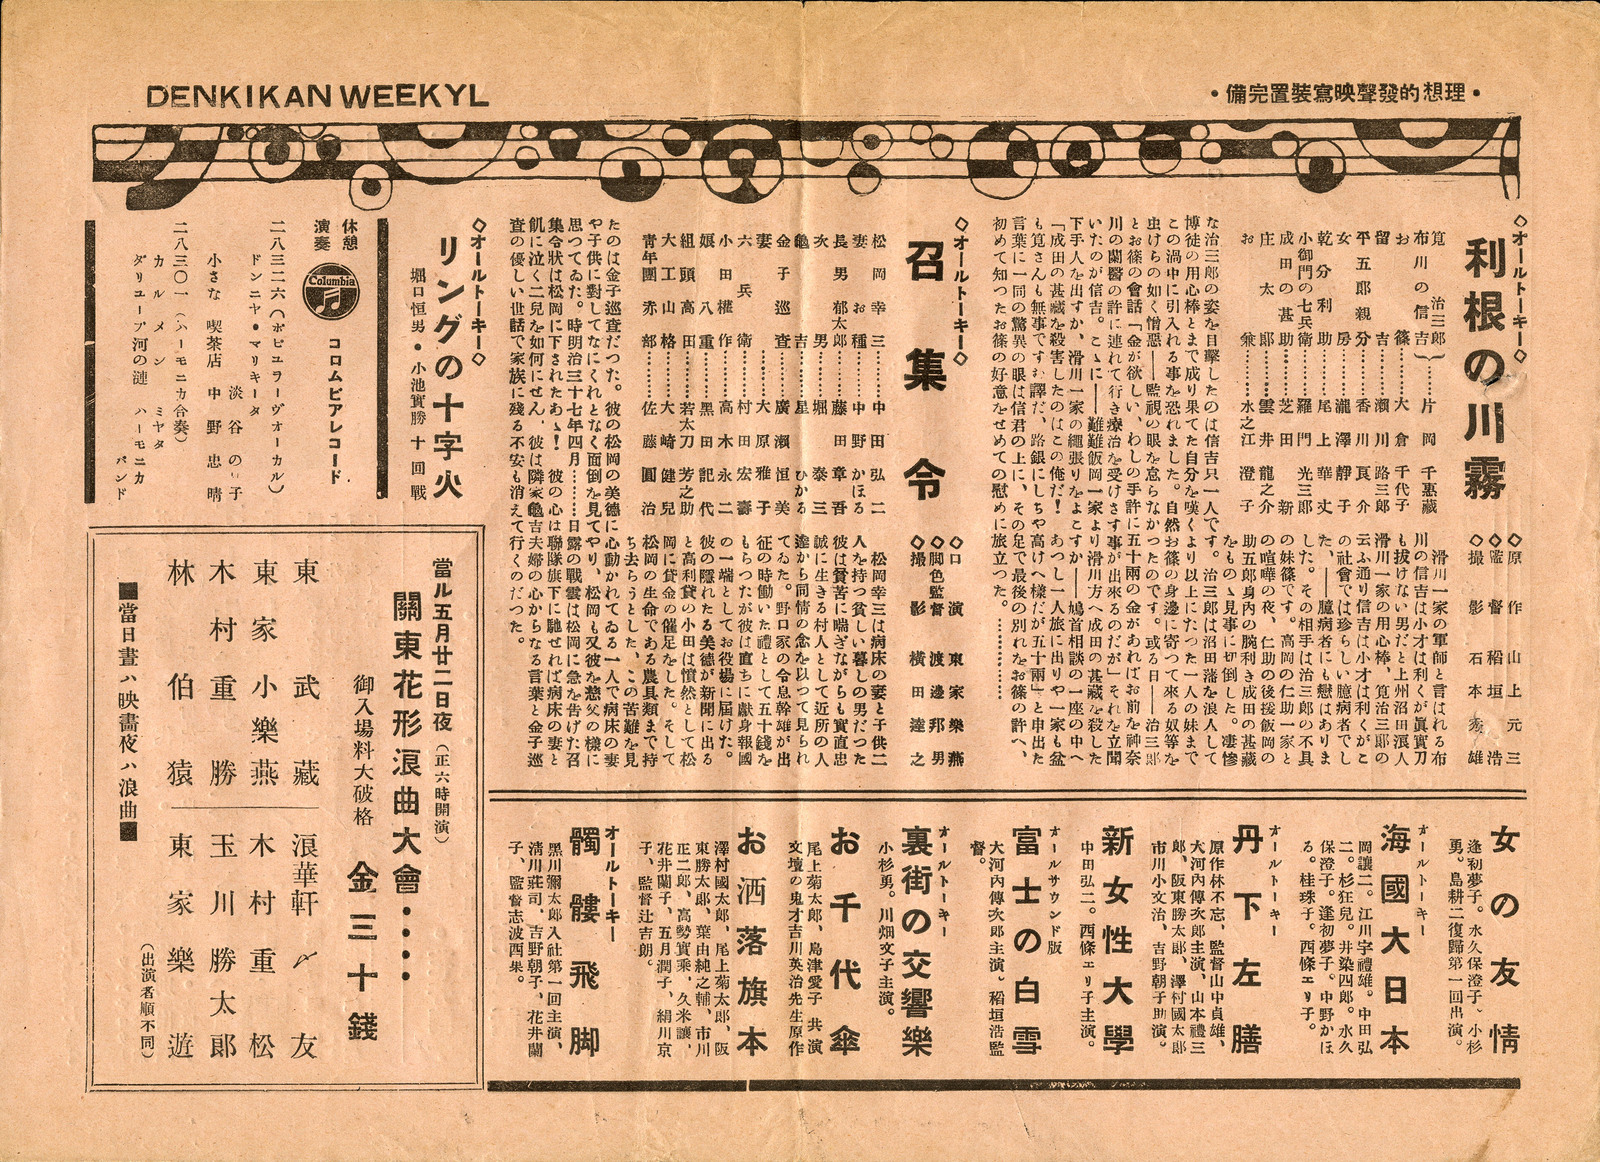 DENKIKAN WEEKYL
・備完置裝寫映聲發的想理・
◇オールトーキー◇
利根の川霧
◇原作 山上元三
◇監督 稻垣浩
◇撮影 石本秀雄
筧治三郎
布川の信吉 片岡千惠藏
お篠 大倉千代子
留吉 瀬川路三郎
平五郎親分 香川良介
女房 瀧澤靜子
乾分利助 尾上華丈
小御門の七兵衞 羅門光三郎
成田の甚助 芝田新
庄太郎 雲井龍之介
お兼 水之江澄子
滑川一家の軍師と言はれる布
川の信吉は小才は利くが眞實刀
も拔けない男だと上州沼田浪人
滑川一家の用心棒、筧治三郎の
云ふ通り信吉は小才は利くがこ
の社會では珍らしい臆病者でし
た、――臆病者にも戀はありま
した。その相手は治三郎の不具
の妹篠です。高岡の仁助一家と
の喧嘩の夜、仁助の後援飯岡の
助五郎身內の腕利き成田の甚藏
のものゝ見事に切倒した。凄慘
な治三郎の姿を目擊したのは信吉只一人です。治三郎は沼田藩を浪人して
博徒の用心棒とまで成り果てた自分を嘆くより以上にたつた一人の妹まで
この渦中に引入れる事を恐れました。自然お篠の身邊に寄つて來る奴等を
虫けらの如く憎惡――監視の眼を怠らなかつたのです。或る日――治三郎
とお篠の會話「金が欲しい、わしの手許に五十兩の金があればお前を神奈
川の蘭醫の許に連れて行き療治を受けさす事が出來るのだが」それを立聞
いたのが信吉。こゝに――難難飯岡一家より滑川方へ成田の甚藏を殺した
下手人を出すか、滑川一家の繩張りをよこすか――鳩首相談の一座の中へ
「成田の甚藏を殺害したのはこの俺だ！ あつし一人旅に出りや一家も盆
も筧さんも無事ですむ譯だ、路銀にしちや高けへ樣だが五十兩」と申出た
言葉に一同の驚異の眼は信君の上に、その足で最後の別れをお篠の許へ、
初めて知つたお篠の好意をせめての慰めに旅立つた。…………
◇オールトーキー◇
召集令
◇口演 東家樂燕
◇脚色監督 渡邊邦男
◇撮影 橫田達之
松岡幸三 中田弘二
妻お種 中野かほる
長男郁太郎 藤田章吾
次男 堀泰三
龜吉 星ひかる
金子巡査 廣瀨恒美
妻 大原雅子
六兵衞 村田宏壽
小田權作 高木永二
娘八重 黑田記代
組頭高田 若太刀芳之助
大工山格 大崎健兒
靑年團赤部 佐藤圓治
松岡幸三は病床の妻と子供二
人を持つ貧しい暮しの男だつた
彼は貧苦に喘ぎながらも實直忠
誠に生きる村人として近所の人
達から同情の念を以つて見られ
てゐた。野口家の令息幹雄が出
征の時働いた禮として五十錢を
もらつたが彼は直ちに獻身報國
の一端としてお役場に屆けた。
彼の隱れたる美德が新聞に出る
と高利貸の小田は憤然として松
岡に貸金の催足をした。そして
松岡の生命である農具類まで持
ち去らうとした、この苦難を見
たのは金子巡査だつた。彼の松岡の美德に心動かれてゐる一人で病床の妻
や子供に對してなにくれとなく面倒を見てやり、松岡も又彼を慈父の樣に
思つてゐた。時明治三十七年四月………日露の戰雲は松岡に急を告げた召
集令狀は松岡に下されたあゝ！ 彼の心は聯隊旗下に馳せれば病床の妻と
飢に泣く二兒を如何にせん、彼は隣家龜吉夫婦の心からなる言葉と金子巡
査の優しい世話で家族に殘る不安も消えて行くのだつた。
◇オールトーキー◇
リングの十字火
堀口恒男・小池實勝 十回戰
休憩
演奏
Columbia
コロムビアレコード
二八三二六（ホピユラーヴオーカル）
ドンニヤ・マリキータ
淡谷のり子
小さな喫茶店 中野忠晴
二八三〇一（ハーモニカ合奏）
カルメン ミヤタ
ダリユーブ河の漣 ハーモニカ
バンド
女の友情
逢初夢子。水久保澄子。小杉
勇。島耕二復歸第一回出演。
オールトーキー
海國大日本
岡讓二。江川宇禮雄。中田弘
二。杉狂兒。井染四郎。水久
保澄子。逢初夢子。中野かほ
る。桂珠子。西條エリ子。
オールトーキー
丹下左膳
原作林不忘、監督山中貞雄、
大河內傳次郞主演、山本禮三
郞、阪東勝太郞、澤村國太郞
市川小文治、吉野朝子助演。
新女性大學
中田弘二。西條エリ子主演。
オールサウンド版
富士の白雪
大河內傳次郞主演。稻垣浩監
督。
オールトーキー
裏街の交響樂
小杉勇。川畑文子主演。
お千代傘
尾上菊太郞、島津愛子 共演
文壇の鬼才吉川英治先生原作
お洒落旗本
澤村國太郞、尾上菊太郞、阪
東勝太郞、葉由純之輔、市川
正二郞、高勢實乘、久米讓、
花井蘭子、五月潤子、絹川京
子、監督辻吉朗。
オールトーキー
髑髏飛脚
黑川彌太郞入社第一回主演、
淸川莊司、吉野朝子、花井蘭
子、監督志波西果。
當ル五月廿二日夜（正六時開演）
關東花形浪曲大會・・・・
御入場料大破格 金三十錢
東武藏 浪華軒〆友
東家小樂燕 木村重松
木村重勝 玉川勝太郞
林伯猿 東家樂遊
（出演者順不同）
■當日晝ハ映畵夜ハ浪曲■